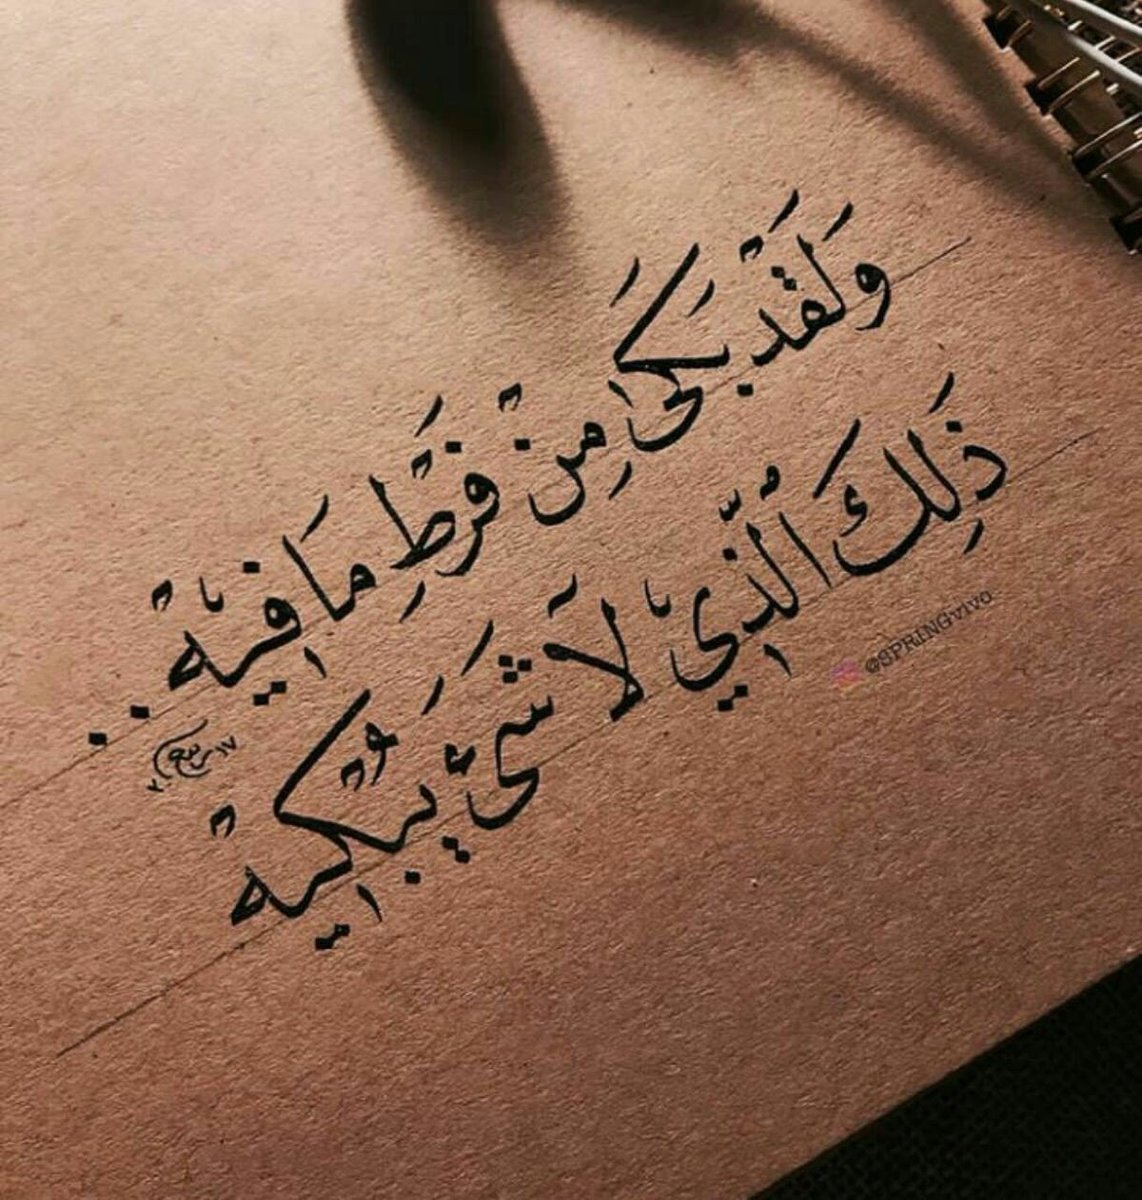 وَلَقَدْ بَكَىٰ مِنْ فَرْطِ مَا فِيْهْ..
ذَلِكَ الَّذِيْ لَا شَيْءَ يُبْكِيْهْ
@SPRINGvivo